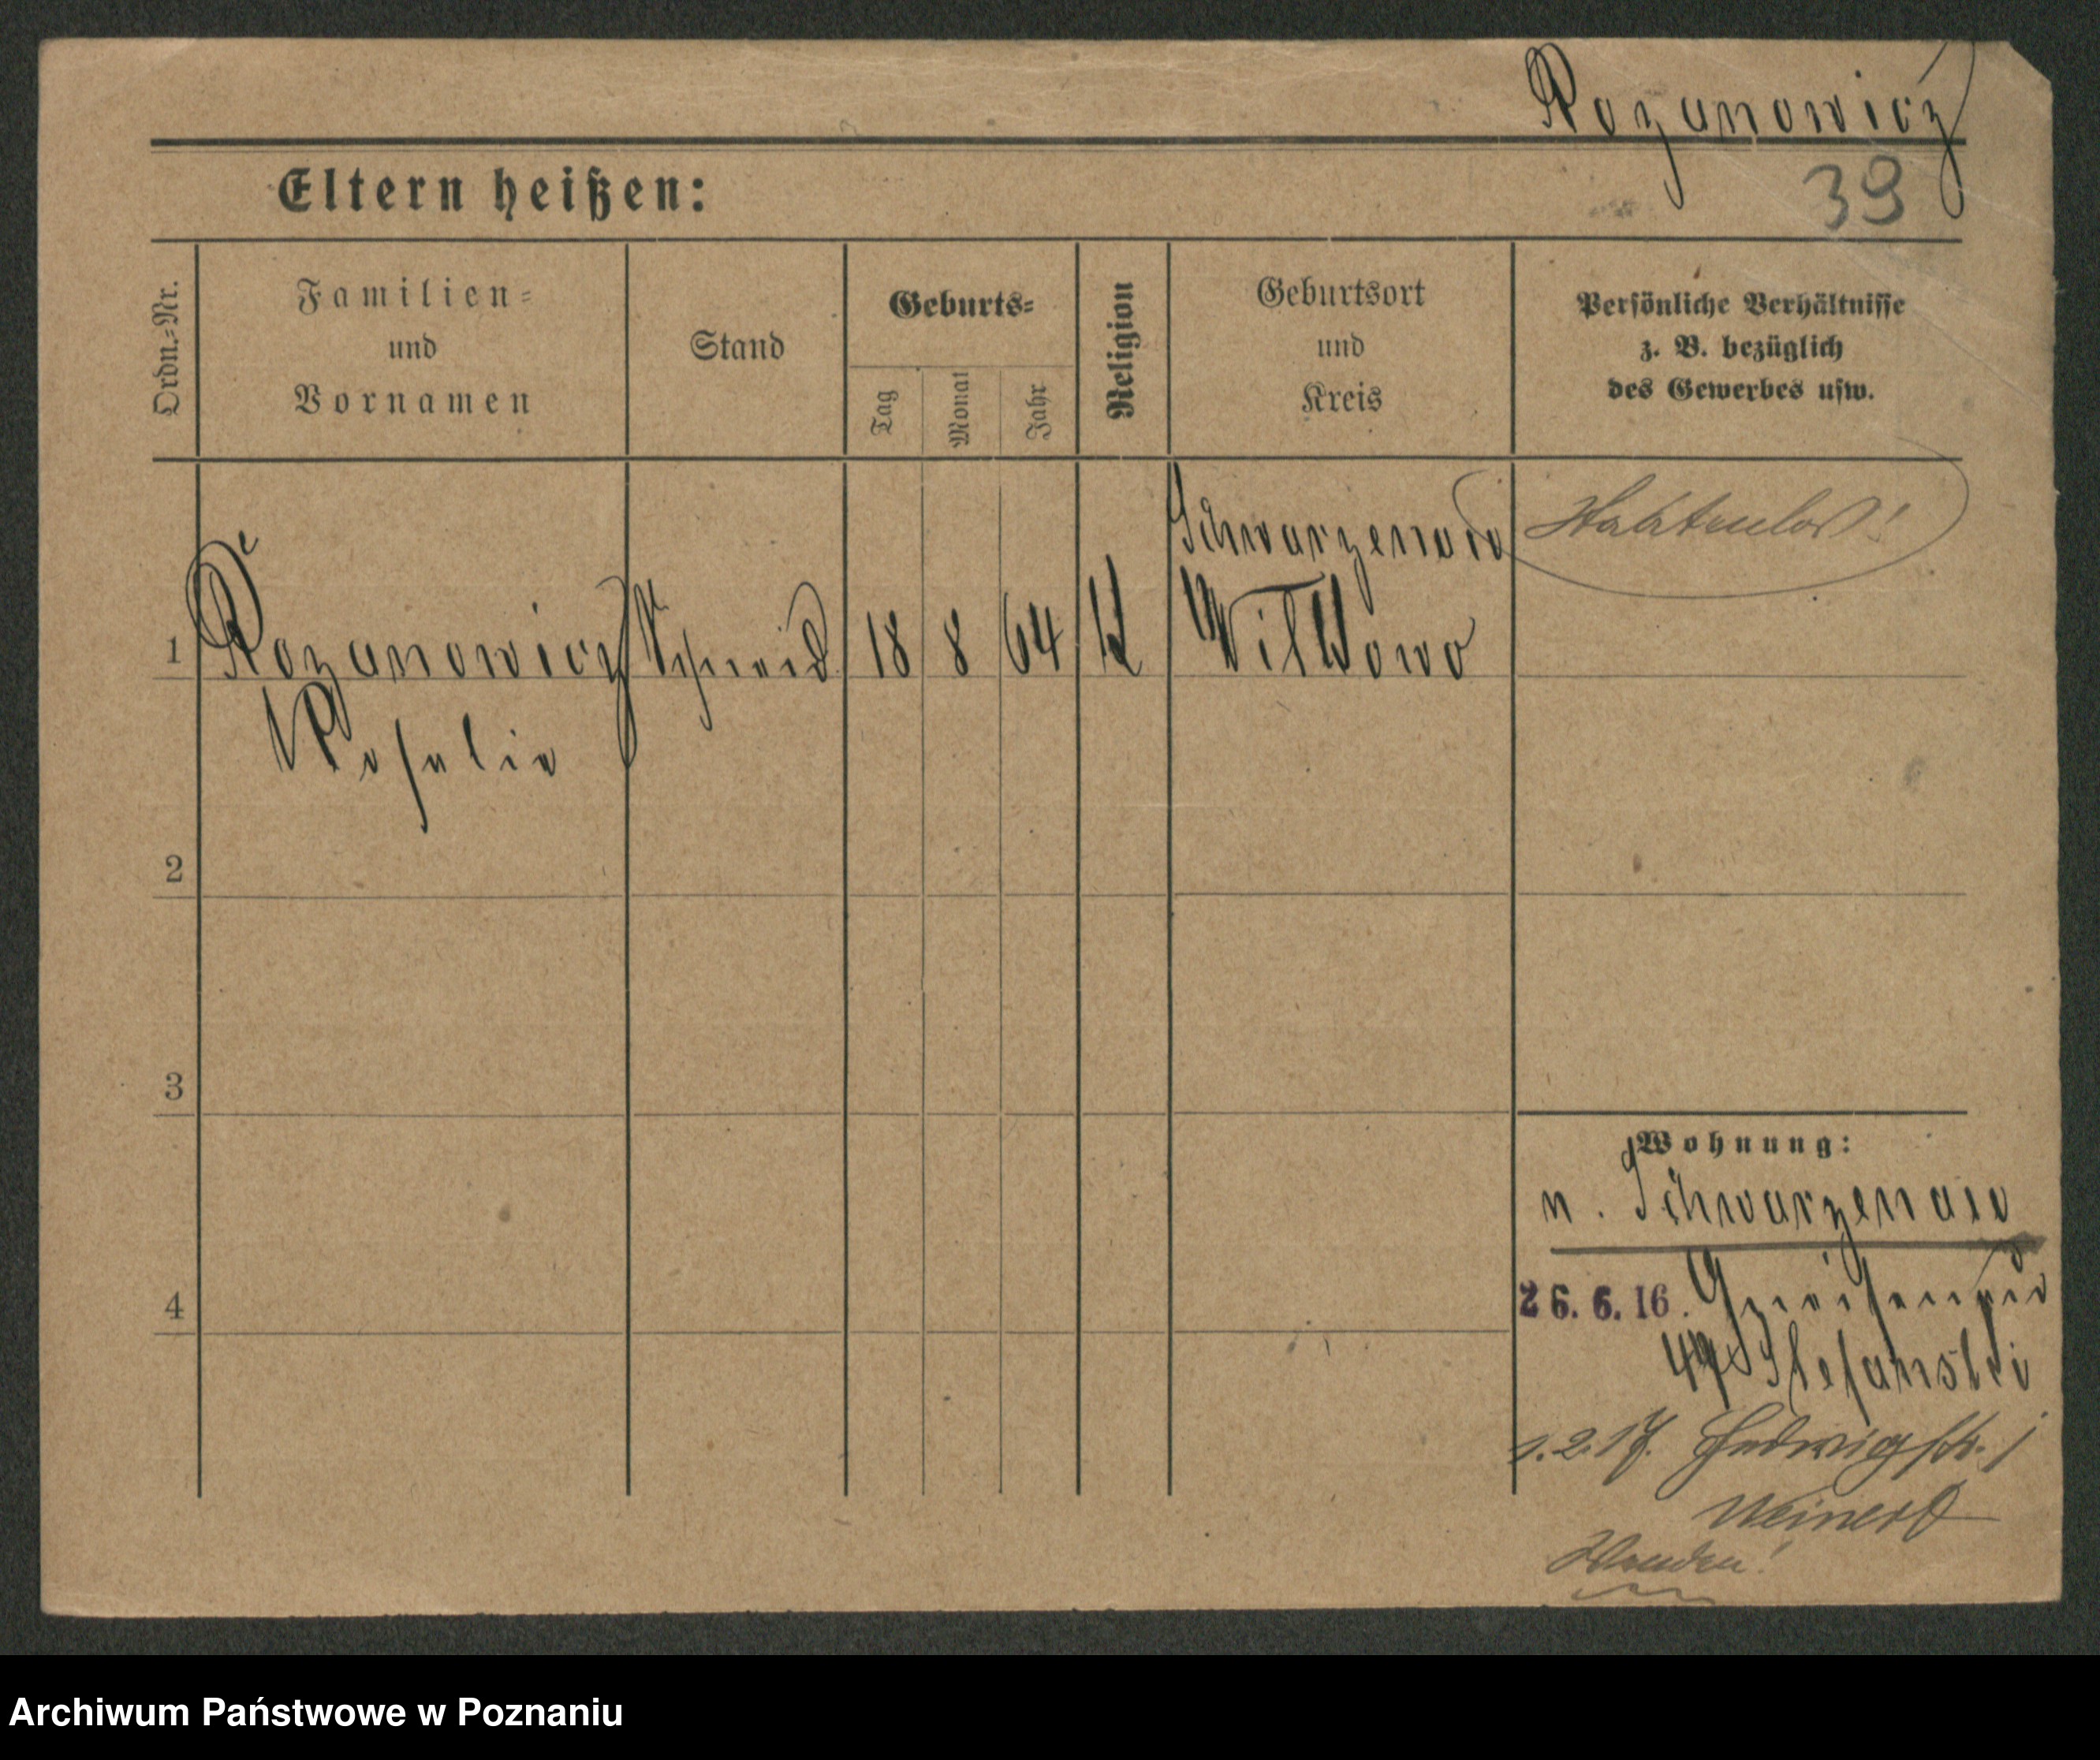 Rozanowicz
39
Eltern heißen:
Ordn.-Nr.
Familien-
und
Vornamen
Stand
Geburts-
Tag
Monat
Jahr
Religion
Geburtsort
und
Kreis
Persönliche Verhältnisse
z. B. bezüglich
des Gewerbes usw.
Schwarzenau
1 Rozanowicz Schneid. 18 8 64 K Witkowo
Rosalie
2
3
4
Wohnung:
n. Schwarzenau
26. 6. 16. Gneisenau
Stefanski
1.2.17. Hedwigstr. 1
Weinert
Wenden!
Archiwum Państwowe w Poznaniu